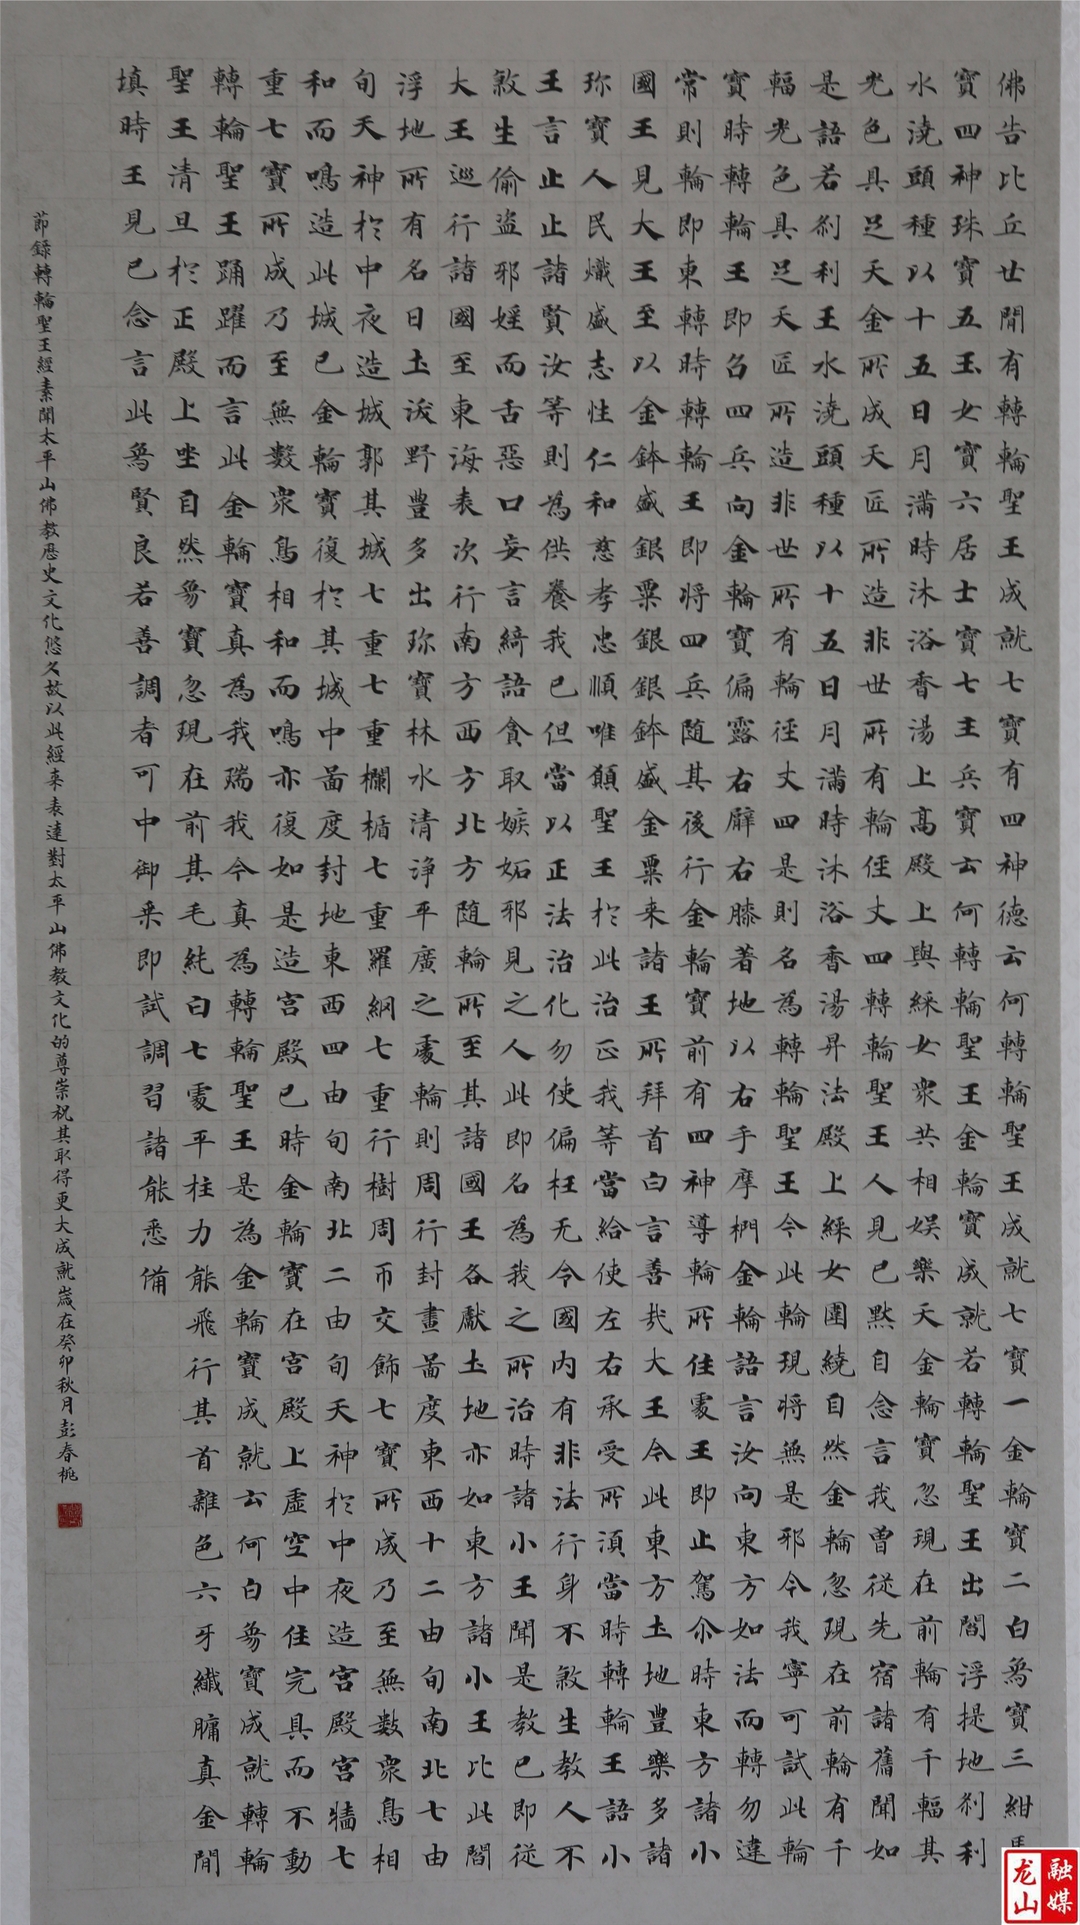 佛告比丘世間有轉輪聖王成就七寶有四神德云何轉輪聖王成就七寶一金輪寶二白象寶三紺馬
寶四神珠寶五玉女寶六居士寶七主兵寶云何轉輪聖王金輪寶成就若轉輪聖王出閻浮提地刹利
水澆頭種以十五日月滿時沐浴香湯上高殿上與綵女衆共相娛樂天金輪寶忽現在前輪有千輻其
光色具足天金所成天匠所造非世所有輪徑丈四轉輪聖王人見已默自念言我曾從先宿諸舊聞如
是語若刹利王水澆頭種以十五日月滿時沐浴香湯昇法殿上綵女圍繞自然金輪忽現在前輪有千
輻光色具足天匠所造非世所有輪徑丈四是則名為轉輪聖王今此輪現將無是邪今我寧可試此輪
寶時轉輪王即召四兵向金輪寶偏露右臂右膝著地以右手摩捫金輪語言汝向東方如法而轉勿違
常則輪即東轉時轉輪王即將四兵随其後行金輪寶前有四神導輪所住處王即止駕尒時東方諸小
國王見大王至以金鉢盛銀粟銀銀鉢盛金粟來諸王所拜首白言善哉大王今此東方土地豊樂多諸
珎寶人民熾盛志性仁和慈孝忠順唯願聖王於此治正我等當給使左右承受所須當時轉輪王語小
王言止止諸賢汝等則為供養我已但當以正法治化勿使偏枉无令國内有非法行身不煞生教人不
煞生偷盗邪婬而舌惡口妄言綺語貪取嫉妬邪見之人此即名為我之所治時諸小王聞是教已即從
大王巡行諸國至東海表次行南方西方北方随輪所至其諸國王各獻土地亦如東方諸小王比此閻
浮地所有名曰土沃野豊多出珎寶林水清淨平廣之處輪則周行封畫啚度東西十二由旬南北七由
旬天神於中夜造城郭其城七重七重欄楯七重羅網七重行樹周帀交飾七寶所成乃至無数衆鳥相
和而鳴造此城已金輪寶復於其城中啚度封地東西四由旬南北二由旬天神於中夜造宮殿宮牆七
重七寶所成乃至無數衆鳥相和而鳴亦復如是造宮殿已時金輪寶在宮殿上虛空中住完具而不動
轉輪聖王踊躍而言此金輪寶真為我瑞我今真為轉輪聖王是為金輪寶成就云何白象寶成就轉輪
聖王清旦於正殿上坐自然象寶忽現在前其毛純白七處平柱力能飛行其首雜色六牙纖𦟛真金間
填時王見已念言此象賢良若善調者可中御乗即試調習諸能悉俻
節錄轉輪聖王經素聞太平山佛教歷史文化悠久故以此經来表達對太平山佛教文化的尊崇祝其取得更大成就歲在癸卯秋月彭春桃
龙山融媒